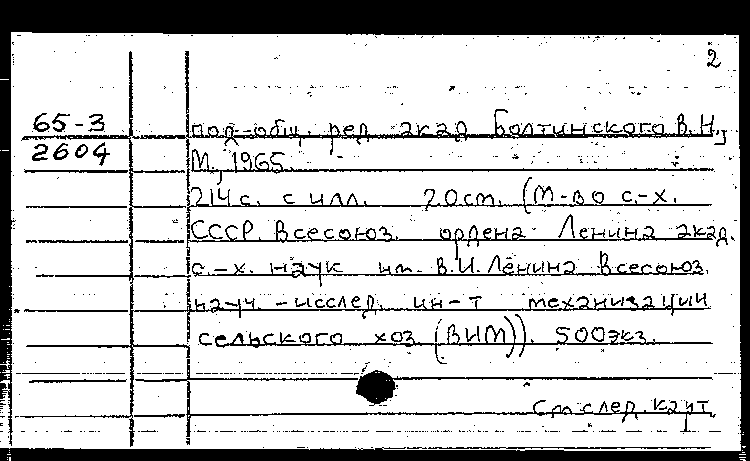 2
65-3
2604
под общ. ред. акад Болтинского В. Н.,
М., 1965.
214 с. с илл. 20 см. (М-во с.-х.
СССР. Всесоюз. ордена Ленина акад.
с.-х. наук им. В.И. Ленина Всесоюз.
науч.-исслед. ин-т механизации
сельского хоз (ВИМ)). 500 экз.
См след. карт.